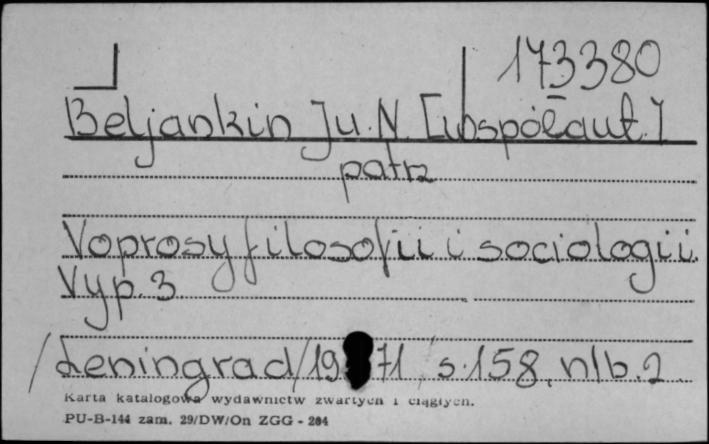 173380
Beljankin Ju. N. [współaut.]
patrz
Voprosy filosofii i sociologii.
Vyp. 3
Leningrad/1971, s. 158, nlb. 2
Karta katalogowa wydawnictw zwartych i ciągłych.
PU-B-144 zam. 29/DW/On ZGG - 284